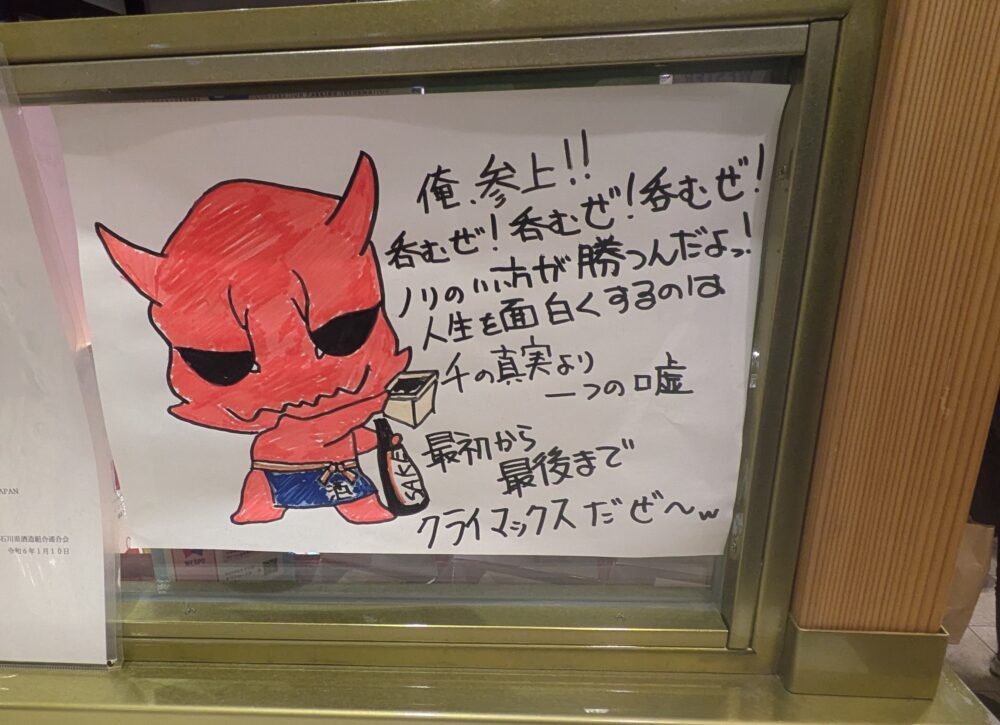 俺、参上!!
呑むぜ!呑むぜ!呑むぜ!
ノリのいい方が勝つんだよっ!
人生を面白くするのは
千の真実より
一つの嘘
最初から
最後まで
クライマックスだぜ〜w
SAKE
酒
APAN
石川県酒造組合連合会
令和6年1月10日